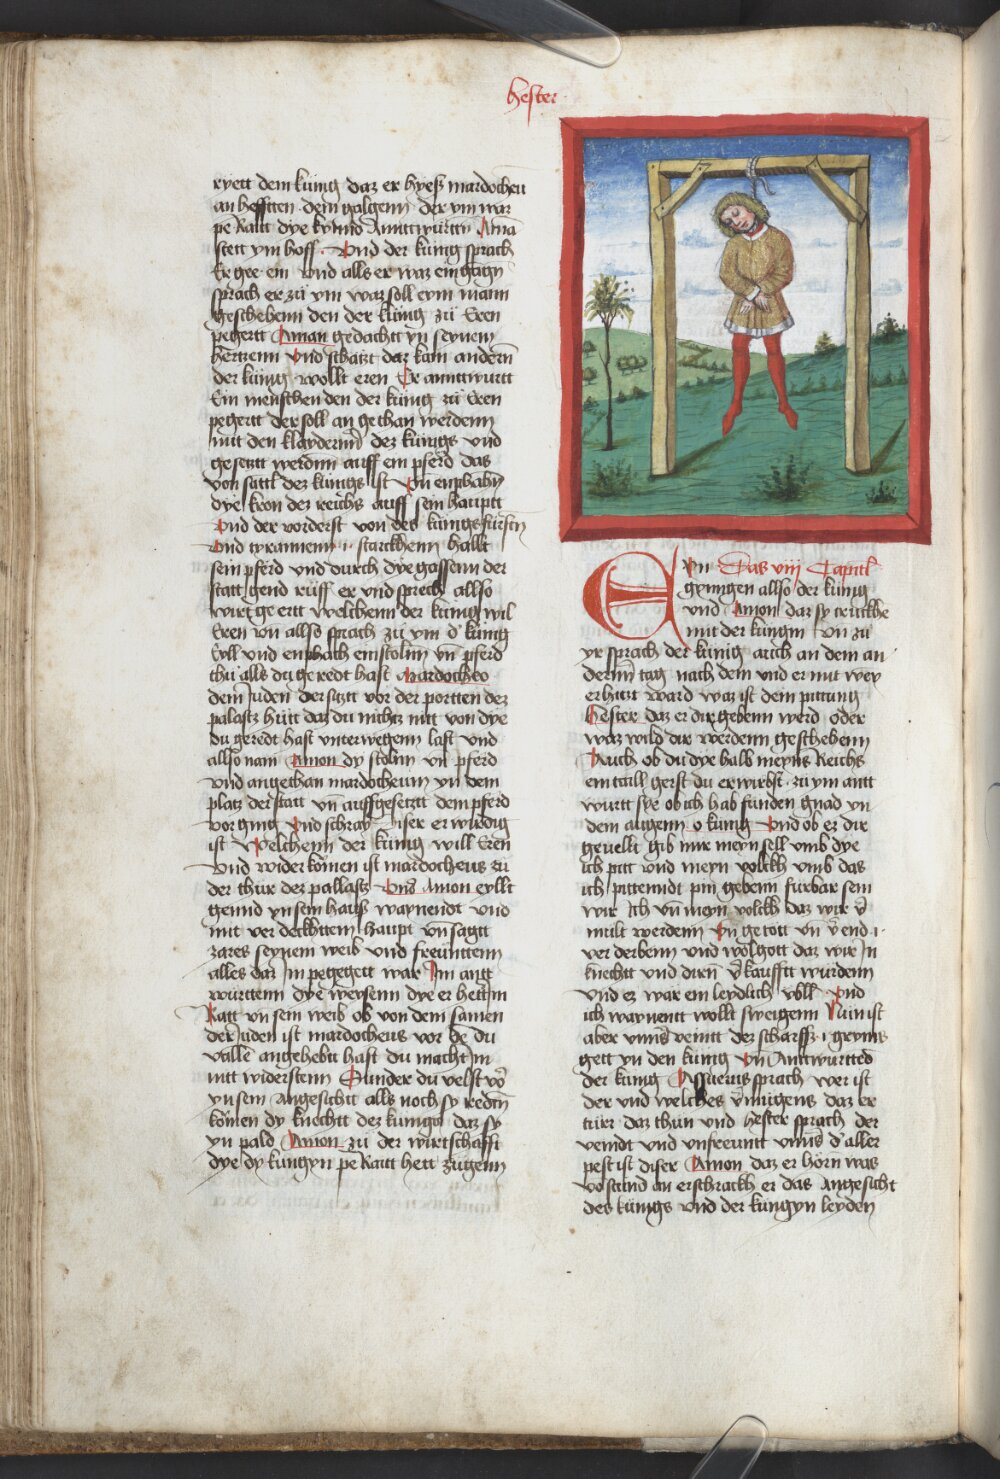 hester
ryett dem künig daz er hyeß mardocheu
an hefften dem galgenn der ym war
pe Raitt dye kynnd Anntwurttn Amā
stett ym hoff · Vnd der künig sprach
Er gee ein vnd alls er waz ein gagn̄
sprach er zü ym waz soll eym mann
geschehenn den der künig zü Eren
pegertt Aman gedachtt yn seynem
hertzenn vnd schatzt daz kain andern̄
der künig wollt eren Er anntwurtt
Ein menschen den der künig zü Eren
pegertt der soll an gethan werdenn
mit den klaydernn̄ dez künigs vnd
gesetztt werdnn auff ein pferd das
von sattl dez künigs ist Vn enphahn̄
dye kron dez reichs auff sein hauptt
Vnd der vorderst von des künigs fürstn̄
Vnd tyrannenn · i · starckhenn hallt
sein pferd vnd durch dye gassenn der
statt gend rüff er vnd sprech allso
wirt ge ertt welchenn der künig wil
Eren vn̄ allso sprach zü ym d' künig
Eyll vnd enphach ein stolnn vn̄ pferd
thü alls du ge redt hast Mardocheo
dem Juden der sitzt vor der portten dez
palastz hütt daz du nichtz nitt von dye
du geredt hast vnterwegenn last vnd
allso nam Amon dy stolnn vn̄ pferd
vnd angethan mardocheum yn dem
platz der statt vn auffgesetztt dem pferd
vor ging Vnd schray diser er wirdig
ist Welchenn der künig will Eren
Vnd wider kömen ist mardocheus zü
der thür dez pallastz Vnd Amon eyllt
gennd yn sein hauß waynendt vnd
mit ver decktem haupt vn sagtt
zares seynem weib vnd freünttenn
alles daz Im pegegett war Im antt
wurttenn dye weysenn dye er hett In
Ratt vn sein weib ob von dem samen
der Juden ist mardocheus vor dē du
valle angehebtt hast du macht Im
nitt widerstenn Sunder du velst vō
yn sein Angesichtt alls noch sy redtn̄
kömen dy knechtt dez kunigs daz sy
yn pald Amon zü der wirtschafft
dye dy küngyn pe Raitt hett zügenn
Vn Das viij Capitl
E gyningen allso der künig
vnd Amon daz sy trückhe
mit der küngin Vn zü
yr sprach der künig auch an dem an
dernn̄ tag nach dem vnd er mit wey
erhitzt ward waz ist dein pittung
hester daz er dir gebenn werd oder
waz wild dir werdenn geschehenn
Auch ob du dye halb meyns Reichs
ein taill gerst du erwirbst · zü ym antt
wurtt sye ob ich hab funden gnad yn
dein augenn o künig Vnd ob ez dir
geuellt gib mir meyn sell vmb dye
ich pitt vnd meyn volckh vmb das
ich pitt gebenn fürbar sein
wir Ich vn̄ meyn volckh daz wir
mült werdenn Vn getott vn̄ v̄end ·
verderbenn vnd wolgott daz wir In
knechtt vnd dirn̄ v̄kaufftt wurdenn
vnd ez war ein leydlich vbll Vnd
ich waynent wollt sweigenn Nun ist
aber vnns̄ veintt dez scharffz · i · gryms
gett yn den künig Vn Anttwurttēd
der künig Assuerus sprach wer ist
der vnd welches v̄mügens daz er
türr daz thün vnd hester sprach der
veindt vnd vnfreuntt vnns̄ d' aller
pest ist diser Amon daz er hörn was
vo stünd an erschrackh er das Angesicht
des künigs vnd der küngyn leyden